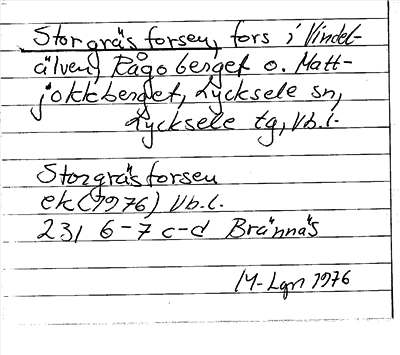 Storgräsforsen, fors i Vindel-
älven, Rågoberget o. Matt-
jokkberget, Lycksele sn,
Lycksele tg, Vb.l.
Storgräsforsen
ek (1976) Vb.l.
23I 6-7 c-d Brännäs
M-Lgn 1976